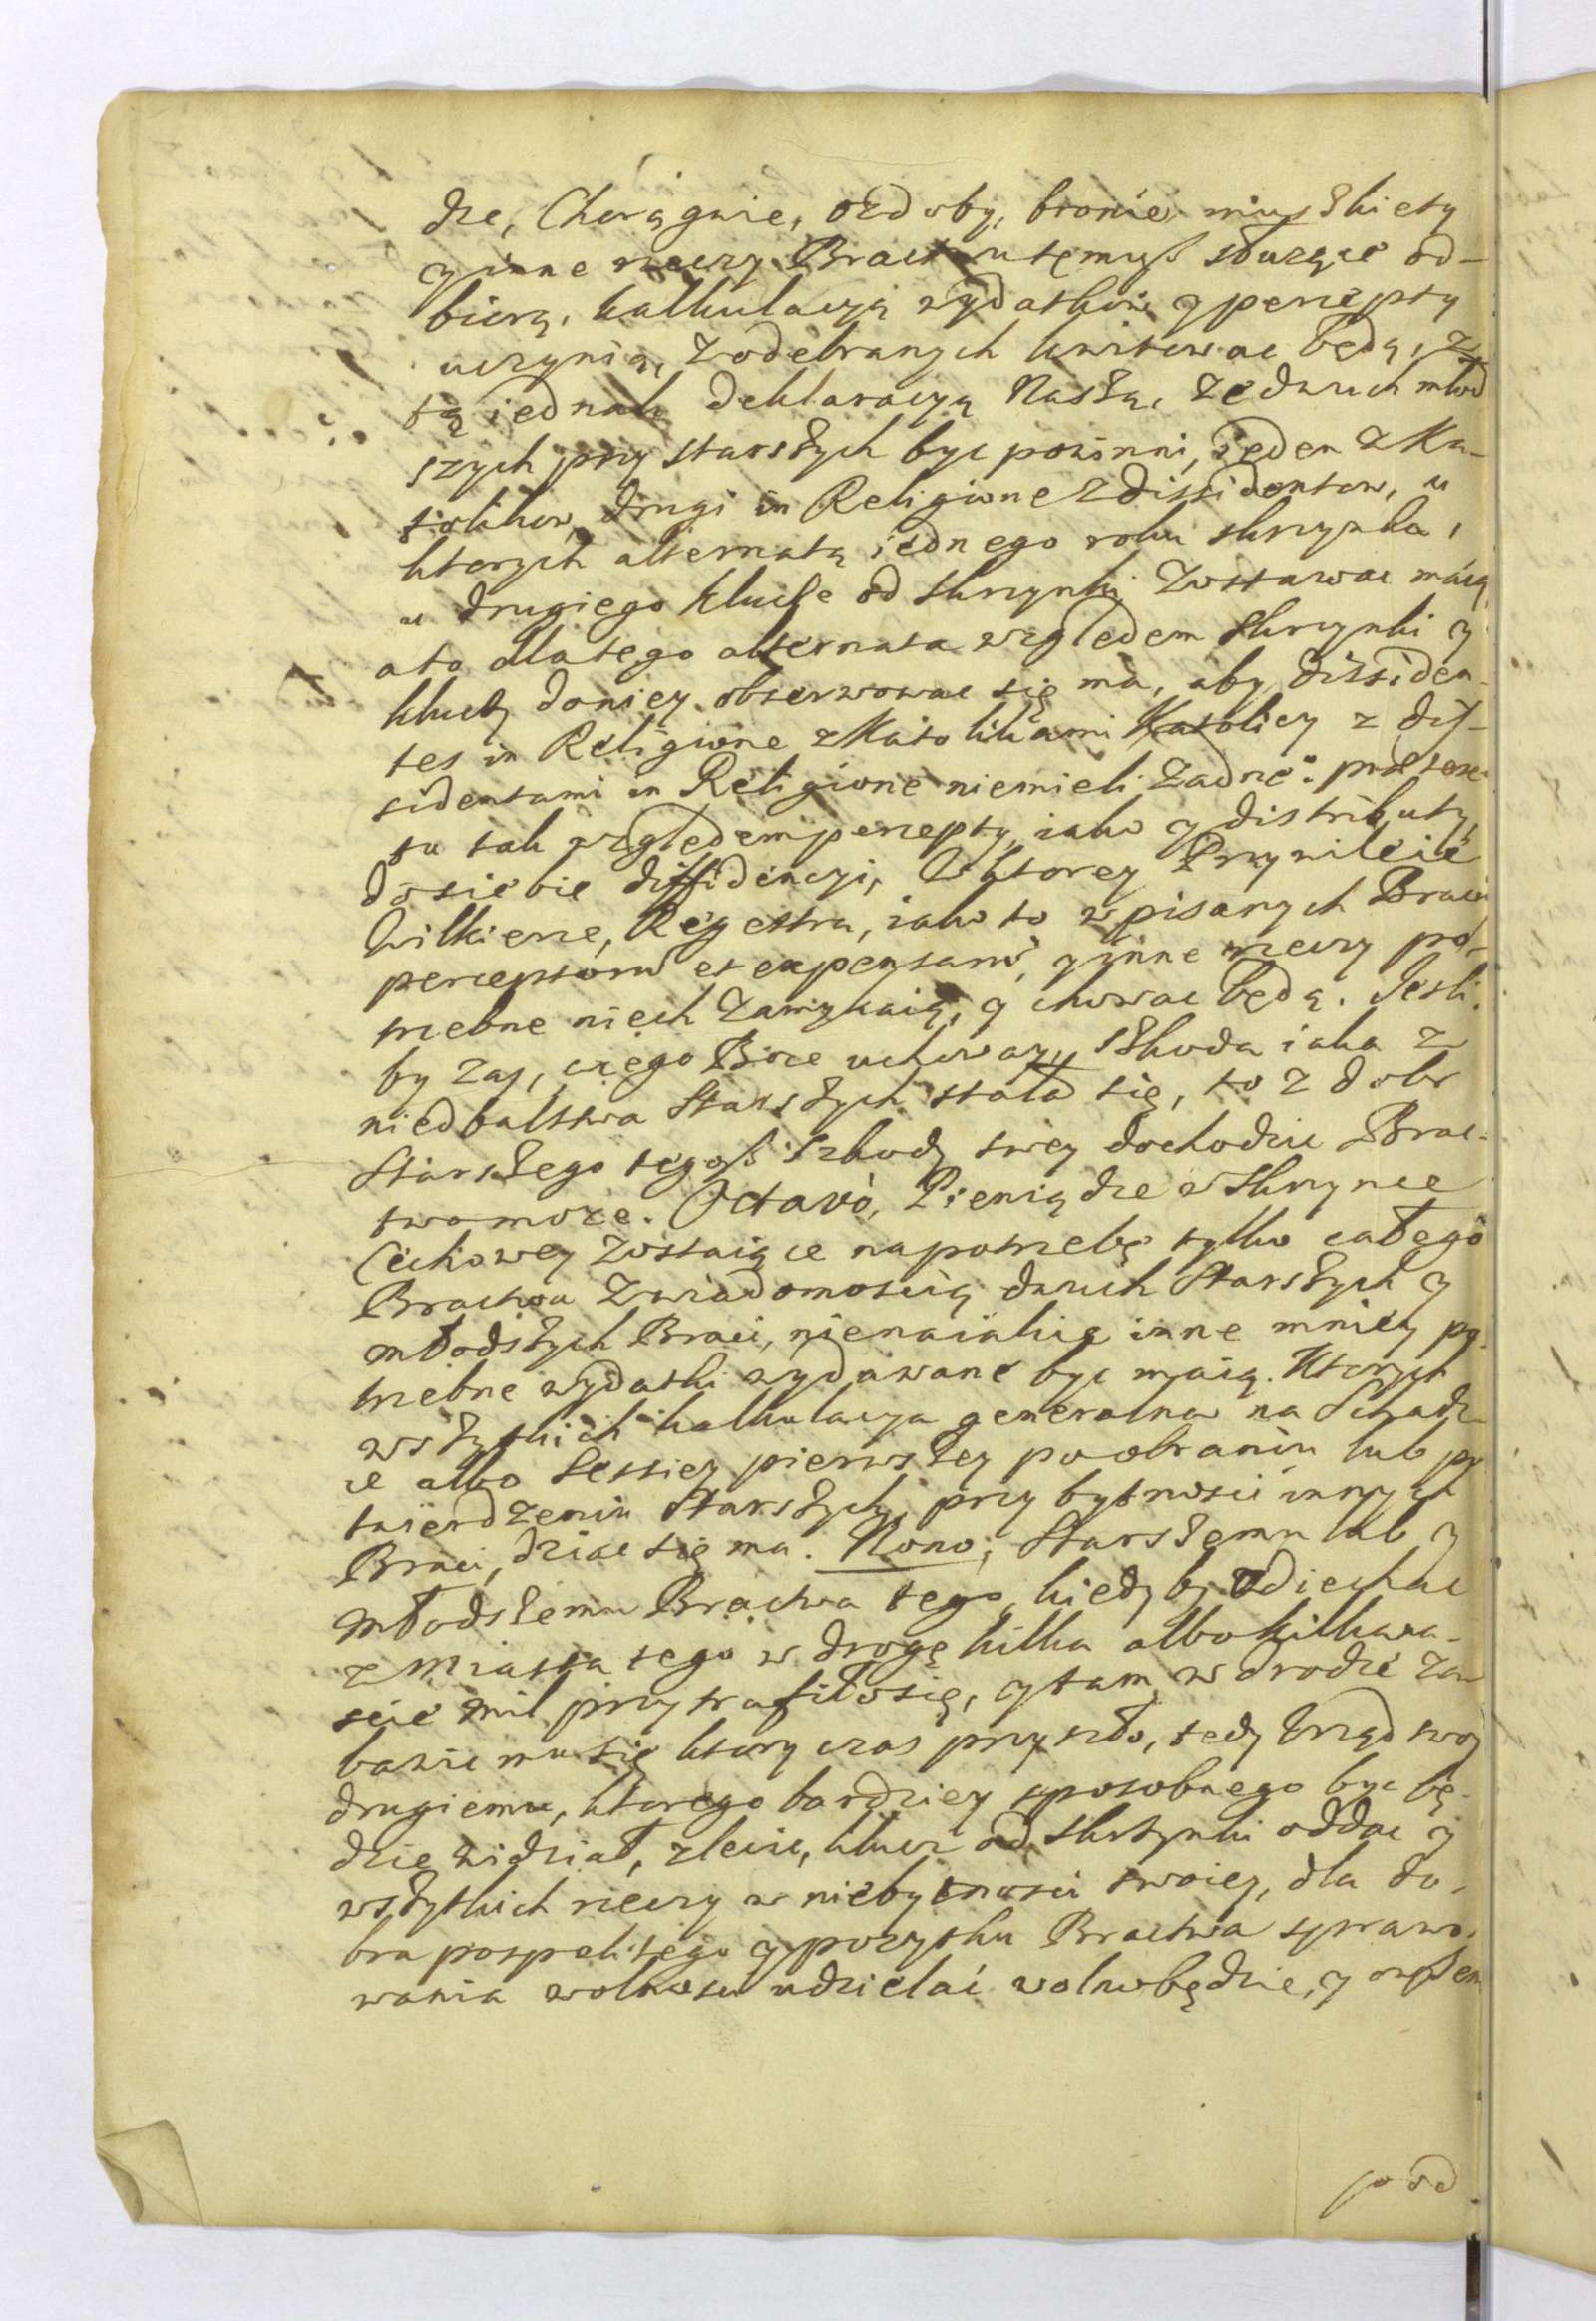 dze, Chorągwie, ozdoby, bronie, muszkiety
y inne rzeczy Bractwu temuß służące od-
biorą, kalkulacyą wydatkow y percepty
uczynią, z odebranych kwitować będą, z
tą iednak deklaracyą Naszą, że dwuch młod
szych przy starszych byc powinni, ieden z Ka-
tolikow, drugi in Religione z dissidentow, u
ktorych alternatą iednego roku skrzynka,
u drugiego klucze od skrzynki zostawac maią,
a to dlatego alternata względem skrzynki y
kluczy do niey obserwowac się ma, aby dissiden-
tes in Religione z Katolikami Katolicy z dis-
sidentami in Religione niemieli żadne: pretex-
tu tak względem percepty, iako y distributy,
do siebie diffidencyi, w ktorey Przywileie
Wilkierze, Regestra, iako to wpisanych Braci
perceptorum et expensarum, y inne rzeczy po-
trzebne niech zamykaią, y chować będą. Jesli
by zas, czego Boże uchoway, szkoda iaka z
niedbalstwa Starszych stała się, to z dobr
Starszego tegoß szkody swey dochodzic Brac-
two może. Octavo, Pieniądze w Skrzynce
Cechowey zostaiące na potrzebę tylko całego
Bractwa z wiadomoscią dwuch Starszych y
młodszych Braci, nie na iakie inne mniey po-
trzebne wydatki wydawane byc maią. Ktorych
wszystkich kalkulacya generalna na Schadz-
ce albo Sessiey pierwszey po obraniu lub po
twierdzeniu Starszych, przy bytnosci innych
Braci, dziac się ma. Nono, Starszemu lub y
młodszemu Bractwa tego, kiedy by odiechac
z Miasta tego w drogę kilka albo kilkana-
scie mil przytrafiło się, y tam w drodze za
bawic mu się ktory czas przyszło, tedy Urząd swoy
drugiemu, ktorego bardziey sposobnego byc bę-
dzie widział, zlecic, klucz od skrzynki oddac y
wszystkich rzeczy w niebytnosci swoiey, dla do-
bra pospolitego y pozytku Bractwa sprawo-
wania wolnosci udzielać wolno będzie, y
pod